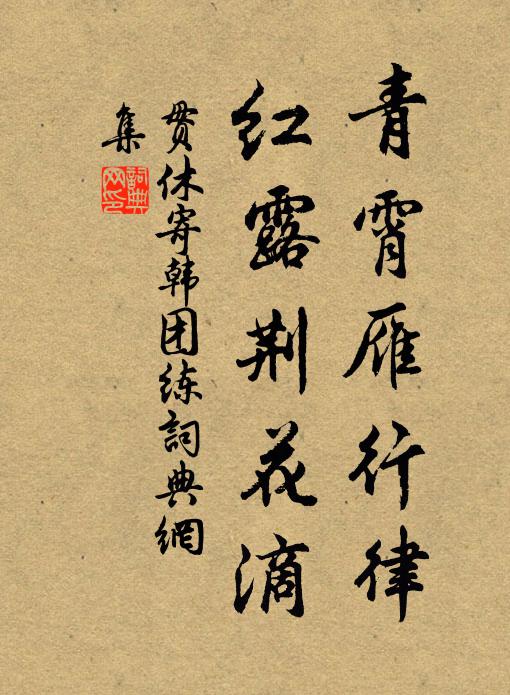 青霄雁行律
红露荆花滴
贯休寄韩团练詞典網
集
詞典网印